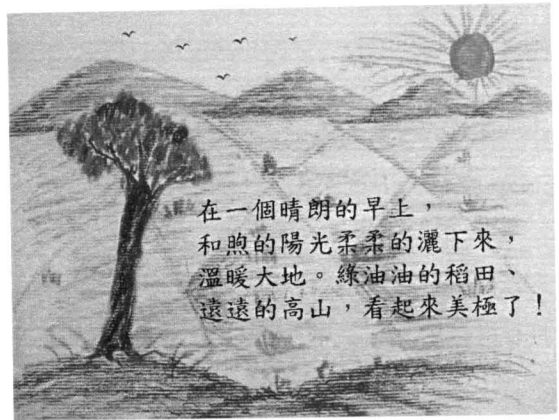 在一個晴朗的早上，
和煦的陽光柔柔的灑下來，
溫暖大地。綠油油的稻田、
遠遠的高山，看起來美極了！